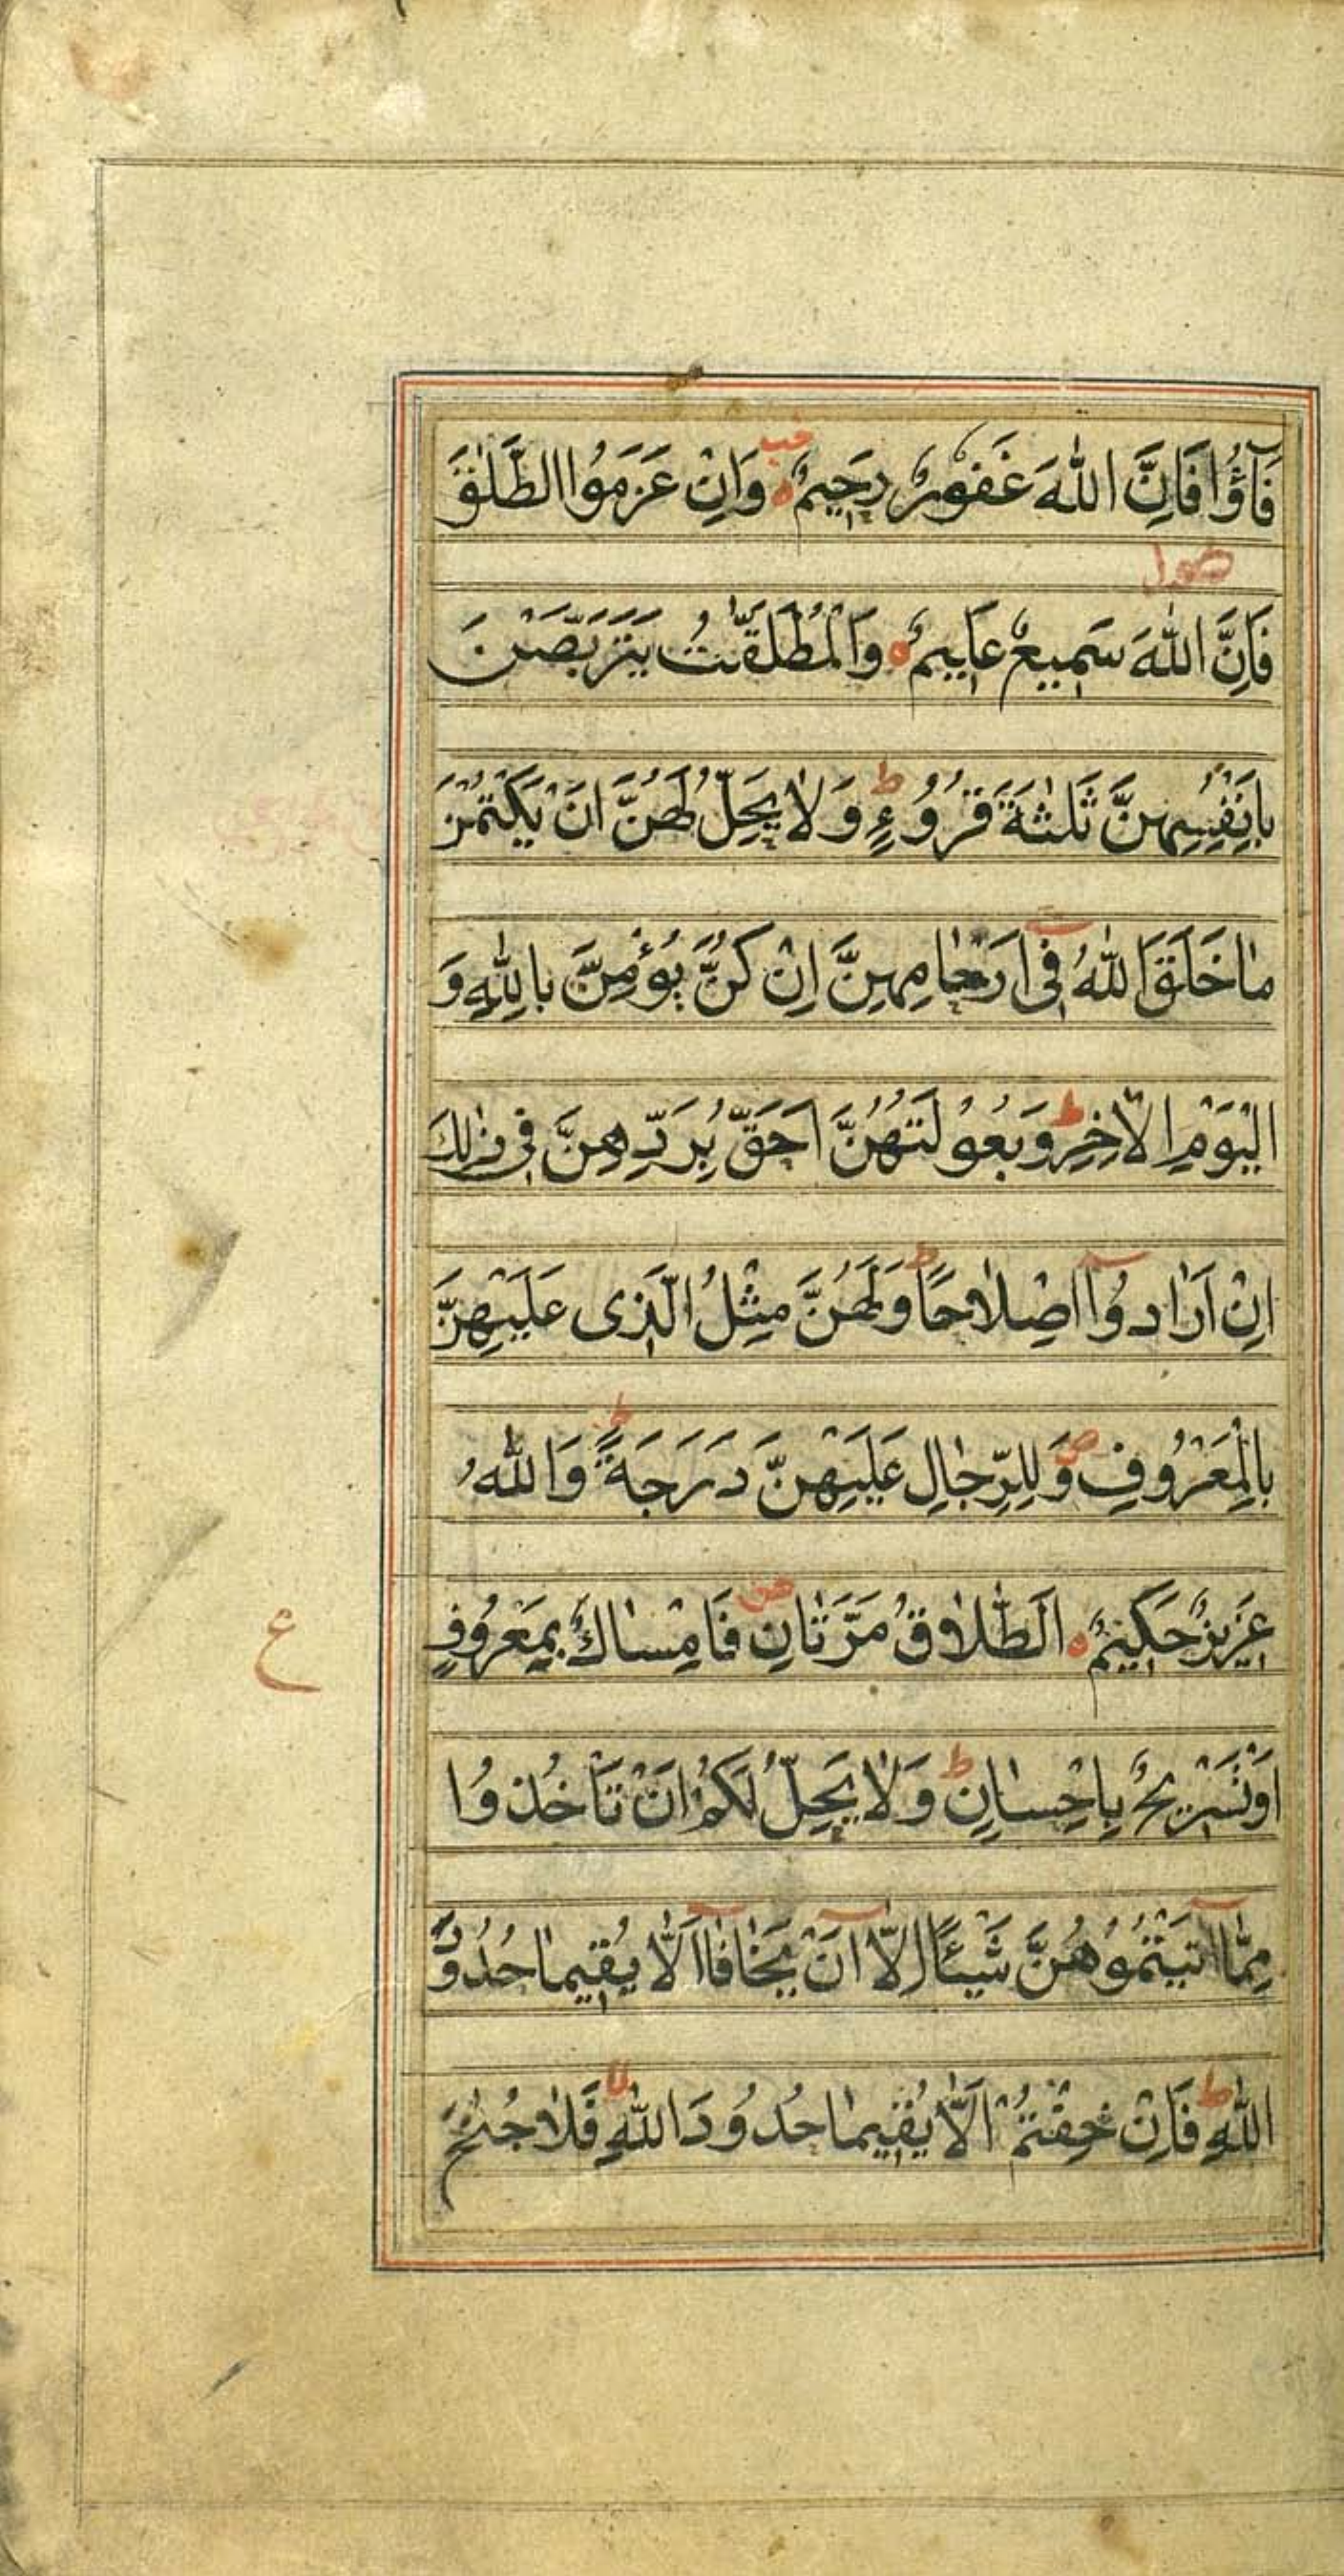 فَآؤُا فَاِنَّ اللّٰهَ غَفُوْرٌ رَحِيْمٌ ه وَاِنْ عَزَمُوا الطَّلٰقَ
فَاِنَّ اللّٰهَ سَمِيْعٌ عَلِيْمٌ ه وَالْمُطَلَّقٰتُ يَتَرَبَّصْنَ
بِاَنْفُسِهِنَّ ثَلٰثَةَ قُرُوْءٍ ط وَلَا يَحِلُّ لَهُنَّ اَنْ يَكْتُمْنَ
مٰا خَلَقَ اللّٰهُ فِى اَرْحٰامِهِنَّ اِنْ كُنَّ يُؤْمِنَّ بِاللّٰهِ وَ
الْيَوْمِ الْاٰخِرِ ط وَبُعُوْلَتُهُنَّ اَحَقُّ بِرَدِّهِنَّ فِى ذٰلِكَ
اِنْ اَرٰادُوْٓا اِصْلٰاحًا ط وَلَهُنَّ مِثْلُ الَّذِى عَلَيْهِنَّ
بِالْمَعْرُوْفِ ص وَلِلرِّجٰالِ عَلَيْهِنَّ دَرَجَةٌ ط وَاللّٰهُ
عَزِيْزٌ حَكِيْمٌ ه اَلطَّلٰاقُ مَرَّتٰانِ ص فَاِمْسٰاكٌ بِمَعْرُوْفٍ
ع
اَوْ تَسْرِيْحٌ بِاِحْسٰانٍ ط وَلٰا يَحِلُّ لَكُمْ اَنْ تَاْخُذُوْا
مِمّٰٓا اٰتَيْتُمُوْهُنَّ شَيْئًا اِلّٰٓا اَنْ يَخٰافٰٓا اَلّٰا يُقِيْمٰا حُدُوْدَ
اللّٰهِ ط فَاِنْ خِفْتُمْ اَلّٰا يُقِيْمٰا حُدُوْدَ اللّٰهِ لا فَلٰا جُنٰحَ